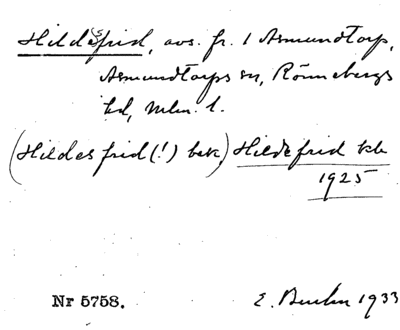 Hildesfrid, avs. fr. 1 Asmundtorp,
Asmundtorps sn, Rönnebergs
hd, Mlm. l.
(Hildesfrid (!) bek) Hildefrid kb
1925
Nr 5758. E. 1933